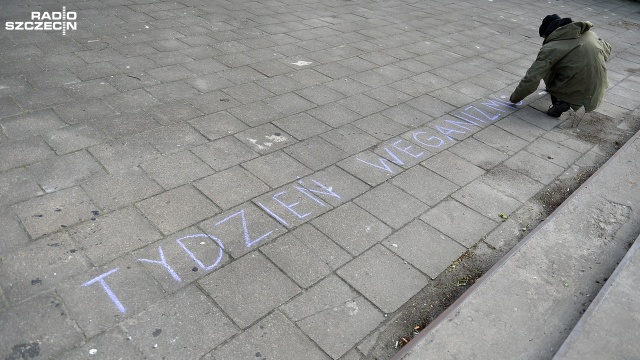 RADIO
SZCZECIN
TYDZIEŃ WEGANIZM